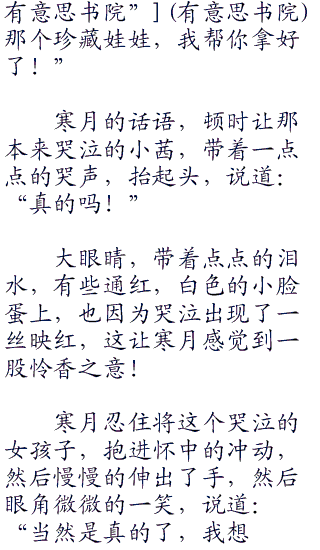 有意思书院”] (有意思书院)
那个珍藏娃娃，我帮你拿好
了！”
寒月的话语，顿时让那
本来哭泣的小茜，带着一点
点的哭声，抬起头，说道：
“真的吗！”
大眼睛，带着点点的泪
水，有些通红，白色的小脸
蛋上，也因为哭泣出现了一
丝映红，这让寒月感觉到一
股怜香之意！
寒月忍住将这个哭泣的
女孩子，抱进怀中的冲动，
然后慢慢的伸出了手，然后
眼角微微的一笑，说道：
“当然是真的了，我想